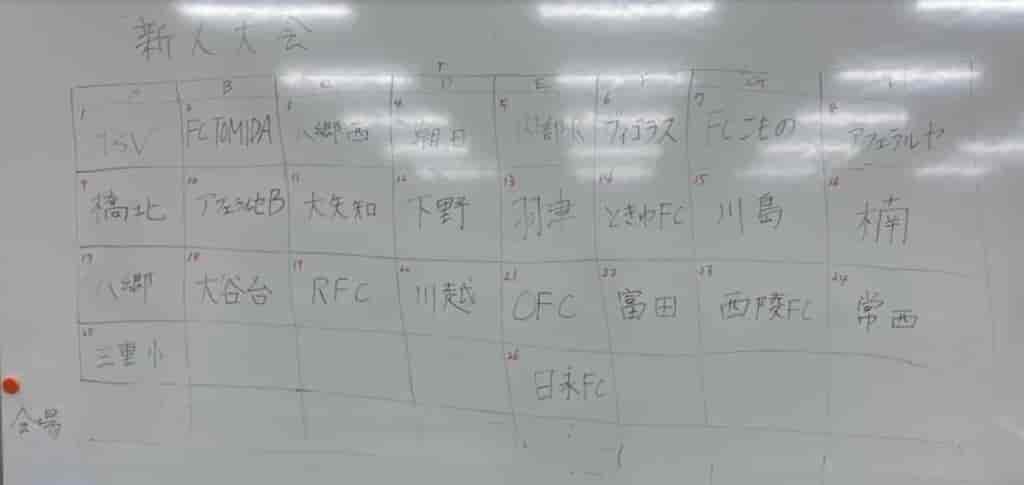 新人大会
A B C D E F G H
1 TSV 2 FC TOMIDA 3 八郷西 4 朝日 5 6 フィゴラス 7 FCこもの 8 アフェラルヤ
9 橋北 10 11 大矢知 12 下野 13 羽津 14 ときわFC 15 川島 16 楠
17 八郷 18 大谷台 19 RFC 20 川越 21 OFC 22 富田 23 西陵FC 24 常西
25 三重小 26 日永FC
会場